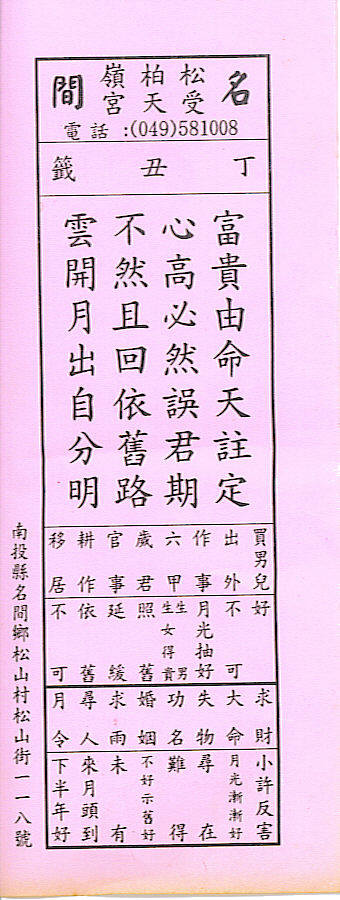 名間
松柏嶺
受天宮
電話:(049)581008
丁丑籤
富貴由命天註定
心高必然誤君期
不然且回依舊路
雲開月出自分明
買男兒 好
出外 不可
作事 月光抽好
六甲 生男 生女得貴
歲君 照舊
官事 延緩
耕作 依舊
移居 不可
求財 小許反害
大命 月光漸漸好
失物 尋在
功名 難得
婚姻 不好示舊好
求雨 未有
尋人 來月頭到
月令 下半年好
南投縣名間鄉松山村松山街一一八號